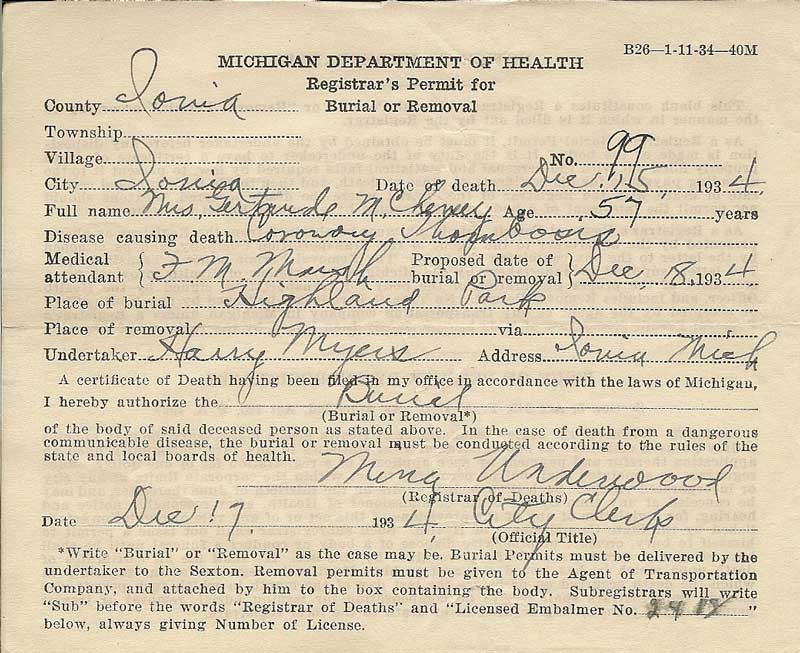 B26—1-11-34—40M
MICHIGAN DEPARTMENT OF HEALTH
Registrar's Permit for
Burial or Removal
County Ionia
Township
Village
No. 99
City Ionia Date of death Dec. 15, 1934,
Full name Mrs. Gertrude M. Cheney Age 57 years
Disease causing death Coronary Thombosis
Medical attendant F. M. Marsh Proposed date of burial or removal Dec. 18, 1934
Place of burial Highland Park
Place of removal via
Undertaker Harry Myers Address Ionia Mich
A certificate of Death having been filed in my office in accordance with the laws of Michigan,
I hereby authorize the Burial
(Burial or Removal*)
of the body of said deceased person as stated above. In the case of death from a dangerous
communicable disease, the burial or removal must be conducted according to the rules of the
state and local boards of health.
Mina Underwood
(Registrar of Deaths)
Date Dec 17, 1934, City Clerk
(Official Title)
*Write "Burial" or "Removal" as the case may be. Burial Permits must be delivered by the
undertaker to the Sexton. Removal permits must be given to the Agent of Transportation
Company, and attached by him to the box containing the body. Subregistrars will write
"Sub" before the words "Registrar of Deaths" and "Licensed Embalmer No. "
below, always giving Number of License.